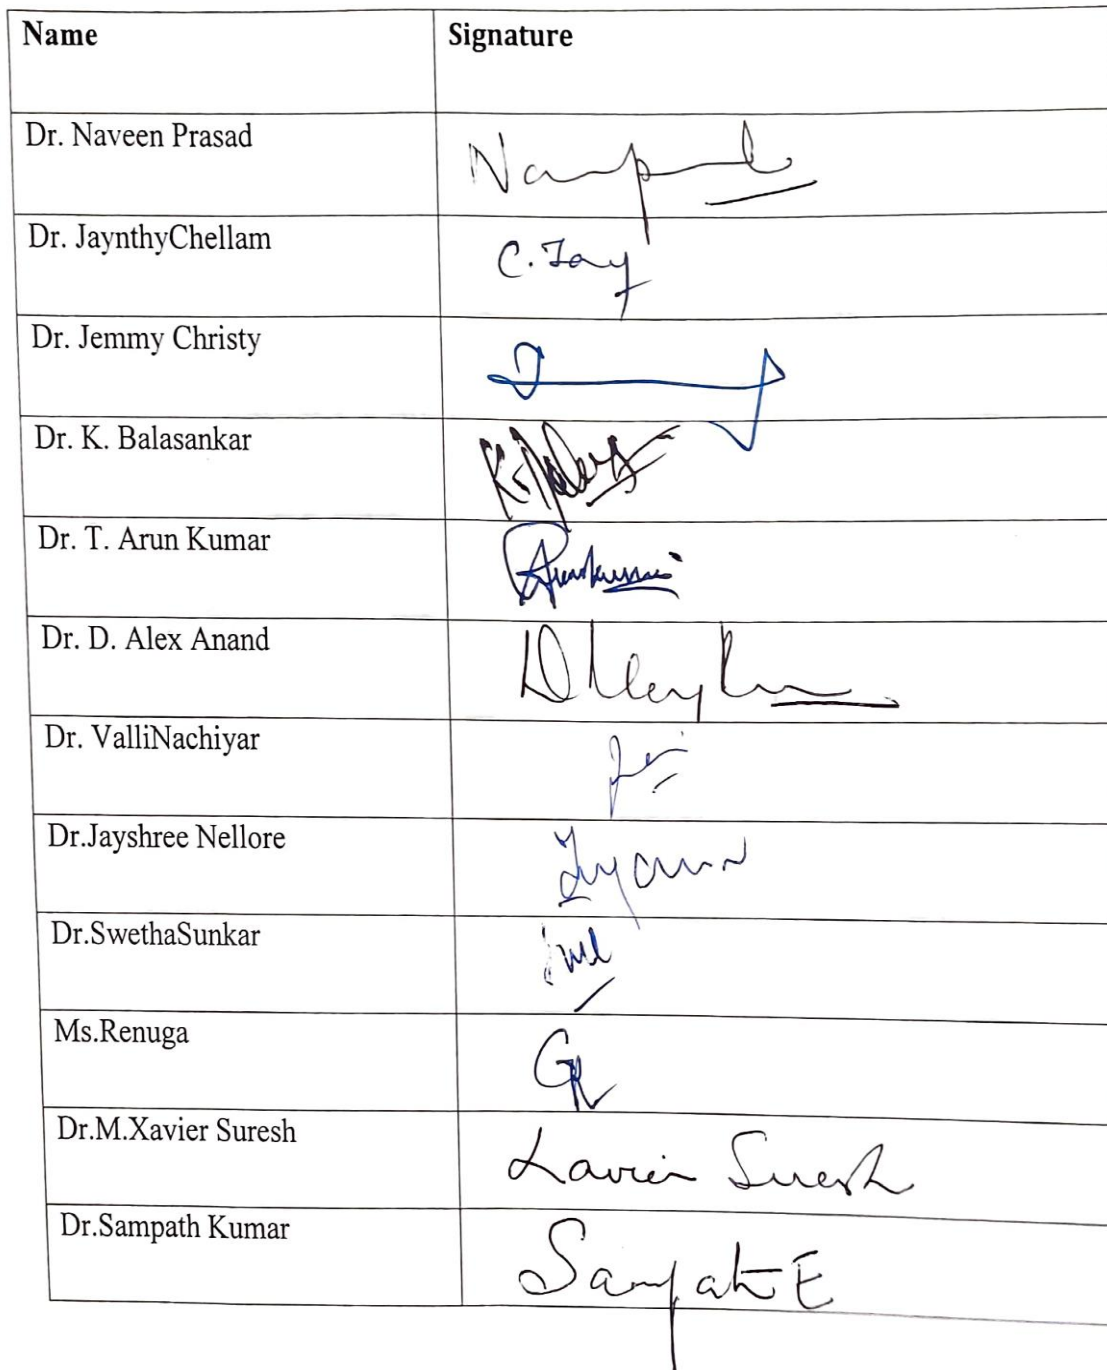 Name Signature
Dr. Naveen Prasad
Dr. JaynthyChellam C. Jay
Dr. Jemmy Christy
Dr. K. Balasankar
Dr. T. Arun Kumar
Dr. D. Alex Anand
Dr. ValliNachiyar
Dr.Jayshree Nellore
Dr.SwethaSunkar
Ms.Renuga GR
Dr.M.Xavier Suresh Xavier Suresh
Dr.Sampath Kumar Sampath E